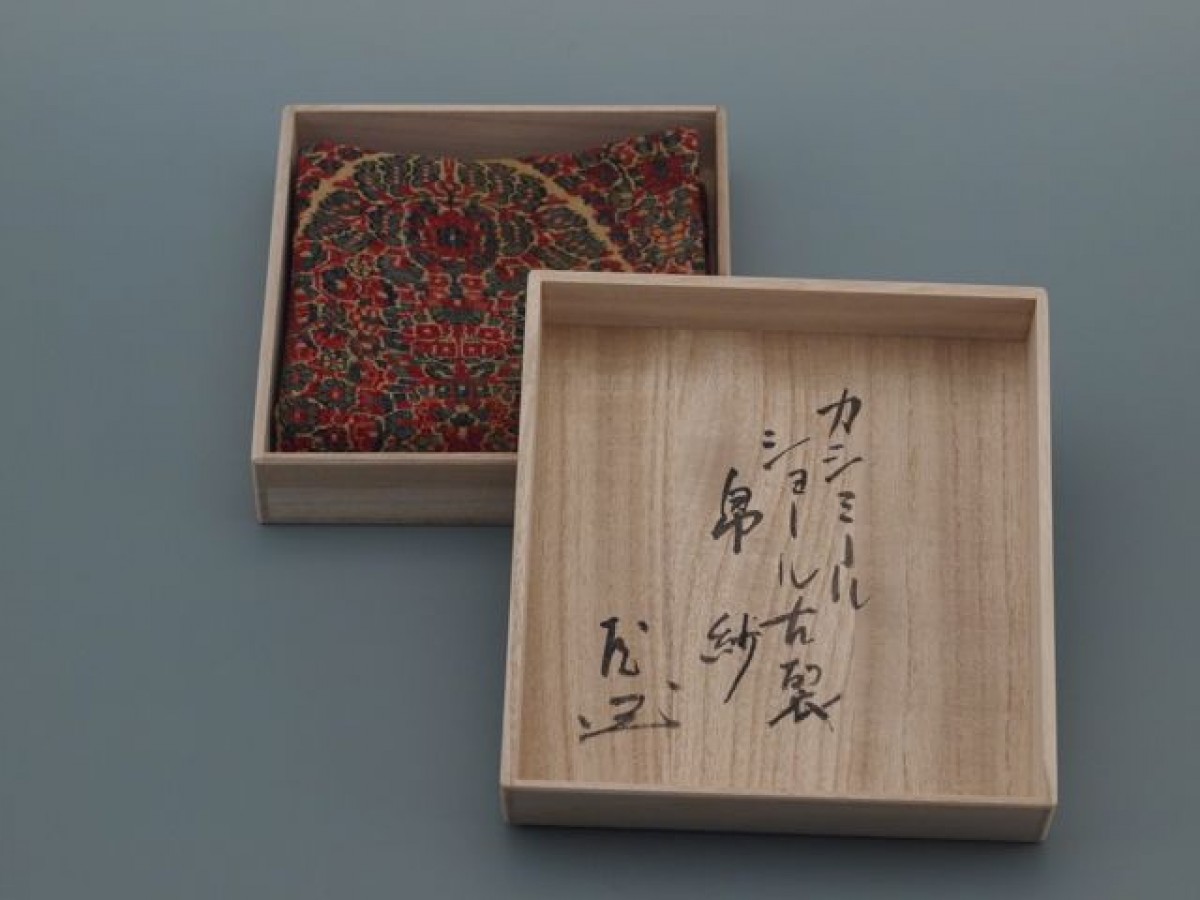 カシミール
ショール古裂
帛紗